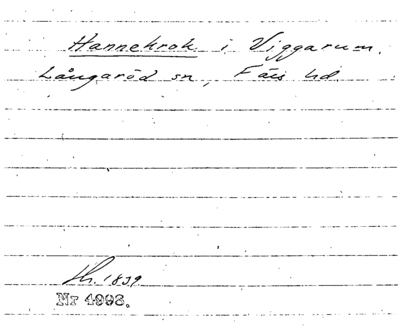 Hannekrok i Viggarum.
Långaröd sn, Färs hd.
Nr 4998.